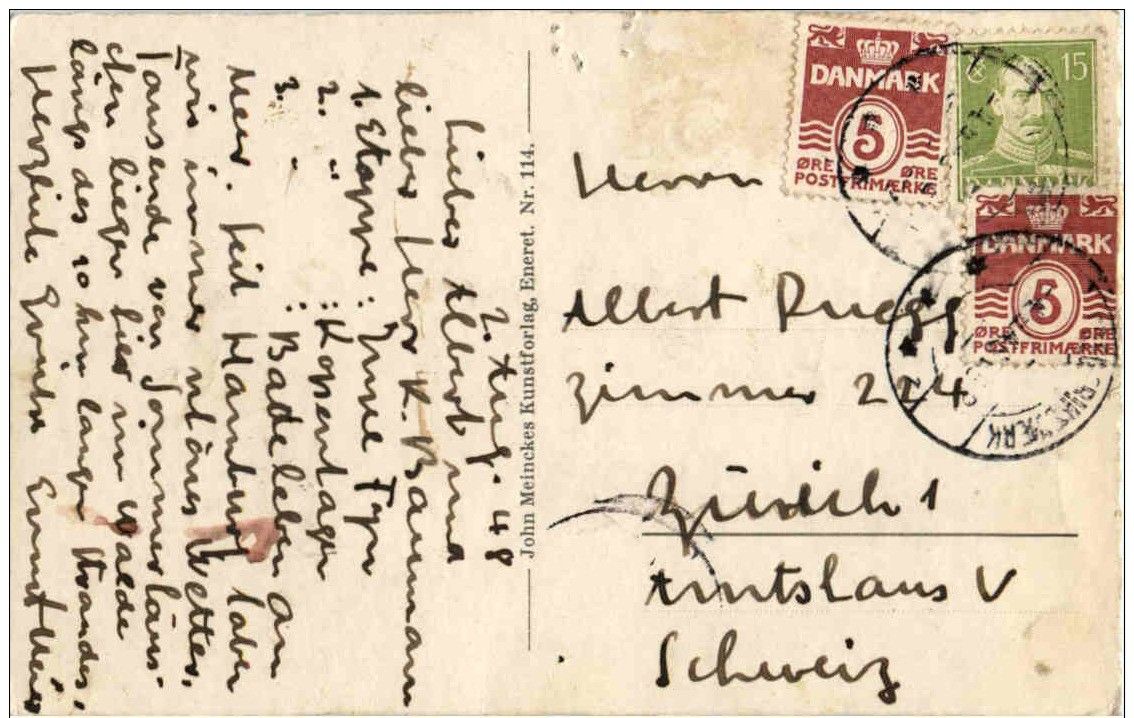 2. Aug. 48
Liebes Albert und
lieber Herr K. Baumann
1. Etappe : Insel Fyn
2. " : Kopenhagen
3. " : Badeleben am
Meer. Seit Hamburg haben
wir immer schönes Wetter.
Tausende von Sommerhäus-
chen liegen hier im Walde
längs des 10 km langen Strandes.
Herzliche Grüsse Ernst Meier
John Meinckes Kunstforlag, Eneret. Nr. 114.
DANMARK
5
ØRE ØRE
POSTFRIMÆRKE
15
DANMARK
5
ØRE ØRE
POSTFRIMÆRKE
Herrn
Albert Ruegg
Zimmer 224
Zürich 1
Amtshaus V
Schweiz